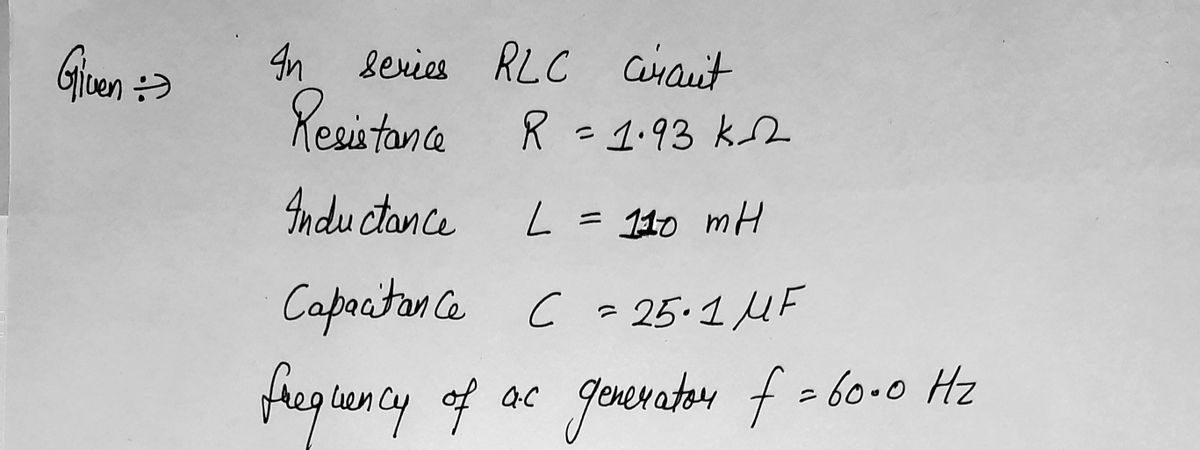 Given ÷) In series RLC circuit
Resistance R = 1.93 kΩ
Inductance L = 110 mH
Capacitance C = 25.1 μF
frequency of a.c generator f = 60.0 Hz